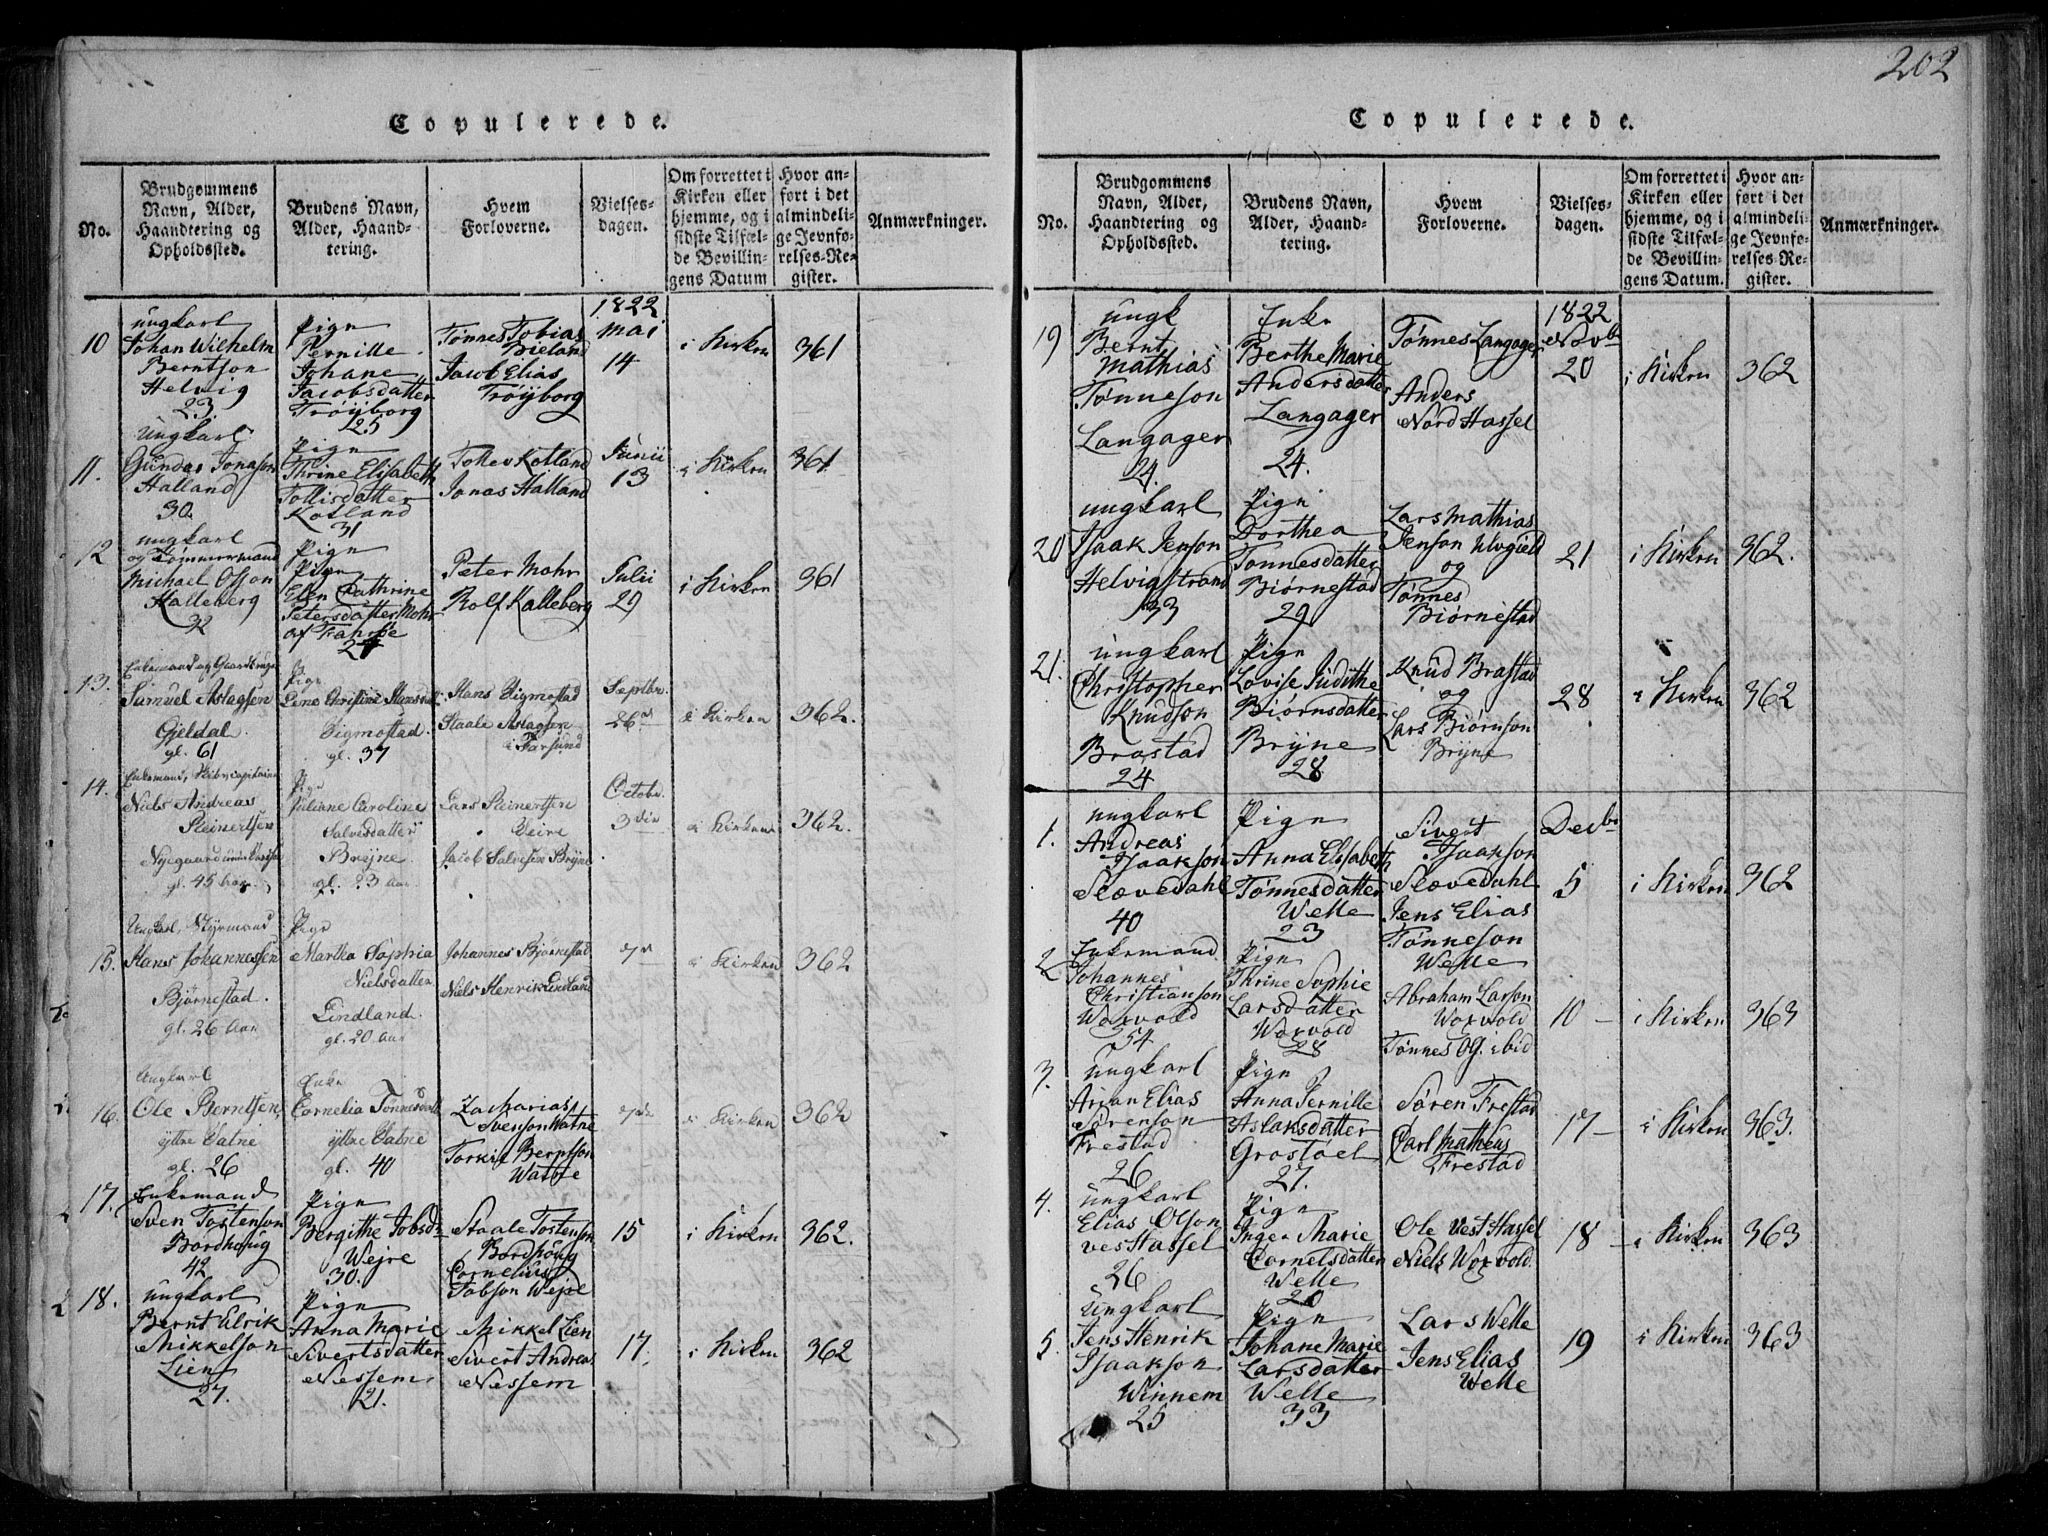 Copulerede.
No.
Brudgommens
Navn, Alder,
Haandtering og
Opholdssted.
Brudens Navn,
Alder, Haand-
tering.
Hvem
Forloverne.
Vielses-
dagen.
Om forrettet i
Kirken eller
hjemme, og i
sidste Tilfæl-
de Bevillin-
gens Datum
Hvor an-
ført i det
almindeli-
ge Jevnfø-
relses-Re-
gister.
Anmærkninger.
10
ungkarl
Johan Wilhelm
Berntson
Helvig
23
Pige
Pernille
Johane
Jacobsdatter
Tröyborg
25
Tønnes Tobias
Bieland
Jacob Elias
Tröyborg
1822
mai
14
i Kirken
361
11.
Ungkarl
Gundas Jonason
Halland
30.
Pige
Thrine Elisabeth
Tollisdatter
Kotland
31
Tollev Kotland
Jonas Halland
Junii
13
i Kirken
361
12
ungkarl
og Tømmermand
Michael Olson
Kalleberg
32
Pige
Pige
Elen Cathrine
Petersdatter Mohr
af Farøe
27
Peter Mohr
Rolf Kalleberg
Julii
29
i Kirken
361
13.
Enkemand og Gaardbruger
Samuel Aslagsen
Gjeldal
gl. 61
Pige
Lene Christine Hansdtt.
Sigmostad.
gl. 37
Hans Sigmostad
Staale Aslagsen
i Farsund
Septbr.
26
i Kirken
362.
14.
Enkemand, Skibscapitain
Niels Andreas
Steinertsen
Nyegaard
gl. 45 Aar.
Pige
Juliane Caroline
Salvesdatter
Bryne
gl. 23 Aar
Lars Steinertsen
Veire
Jacob Salvesen Bryne
Octobr.
3die
i Kirken
362.
15.
Ungkarl, Styrmand
Hans Johannessen
Bjørnestad.
gl. 26 Aar
Pige
Martha Sophia
Nielsdatter
Lindland.
gl. 20 Aar
Johannes Bjørnestad
Niels Henrik Lindland
7de
i Kirken
362
16.
Ungkarl
Ole Berntsen
yttre Vatne
gl. 26
Enke
Cornelia Tønnesdatt
yttre Vatne
gl. 40
Zacharias
Svenson Watne
Torkil Berntson
Watne
7de
i Kirken
362
17.
Enkemand
Sven Tostenson
Bordhoug
42
Pige
Bergithe Jobsd:
Wejre
30.
Staale Tostenson
Bordhoug
Cornelius
Jobson Wejre
15
i Kirken
362.
18.
ungkarl
Bernt Elrik
Mikkelson
Lien
27.
Pige
Anna Marie
Sivertsdatter
Nessem
21.
Mikkel Lien
Sivert Andreas
Nessem
17.
i Kirken
362
202
Copulerede.
No.
Brudgommens
Navn, Alder,
Haandtering og
Opholdssted.
Brudens Navn,
Alder, Haand-
tering.
Hvem
Forloverne.
Vielses-
dagen.
Om forrettet i
Kirken eller
hjemme, og i
sidste Tilfæl-
de Bevillin-
gens Datum.
Hvor an-
ført i det
almindeli-
ge Jevnfø-
relses-Re-
gister.
Anmærkninger.
19
ungk
Bernt
Mathias
Tønneson
Langager
24.
Enke
Berthe Marie
Andersdatter
Langager
24.
Tønnes Langager
Anders
Nord Hassel
1822
Novbr
20
i Kirken
362
20
ungkarl
Isaak Jenson
Helvigstrand
33
Pige
Dorthea
Tønnesdatter
Biørnestad
29
Lars Mathias
Jenson Ulvgield
og
Tønnes
Biørnestad
21
i Kirken
362.
21.
ungkarl
Christopher
Knudson
Brastad
24
Pige
Lovise Judithe
Biørnsdatter
Bryne
28
Knud Brastad
og
Lars Biørnson
Bryne
28
i Kirken
362
1.
ungkarl
Andreas
Isaakson
Slævedahl
40
Pige
Anna Elisabeth
Tønnesdatter
Welle
23
Sivert
Isaakson
Slævedahl
Jens Elias
Tønneson
Welle
Decbr
5
i Kirken
362
2
Enkemand
Johannes
Christianson
Woxvold
54
Pige
Thrine Sophie
Larsdatter
Woxvold
28
Abraham Larson
Woxvold
Tønnes Ol. ibid
10 —
i Kirken
363
3.
ungkarl
Arian Elias
Sørenson
Frestad
26
Pige
Anna Pernille
Aslaksdatter
Grostøel
27.
Søren Frestad
Carl Matheus
Frestad
17 —
i Kirken
363.
4.
ungkarl
Elias Olson
vest Hassel
26
Pige
Inger Marie
Cornelsdatter
Welle
20
Ole Vest Hassel
Niels Woxvold.
18 —
i Kirken
363
5.
Ungkarl
Jens Henrik
Isaakson
Winnem
25
Pige
Johane Marie
Larsdatter
Welle
33
Lars Welle
Jens Elias
Welle
19
i Kirken
363